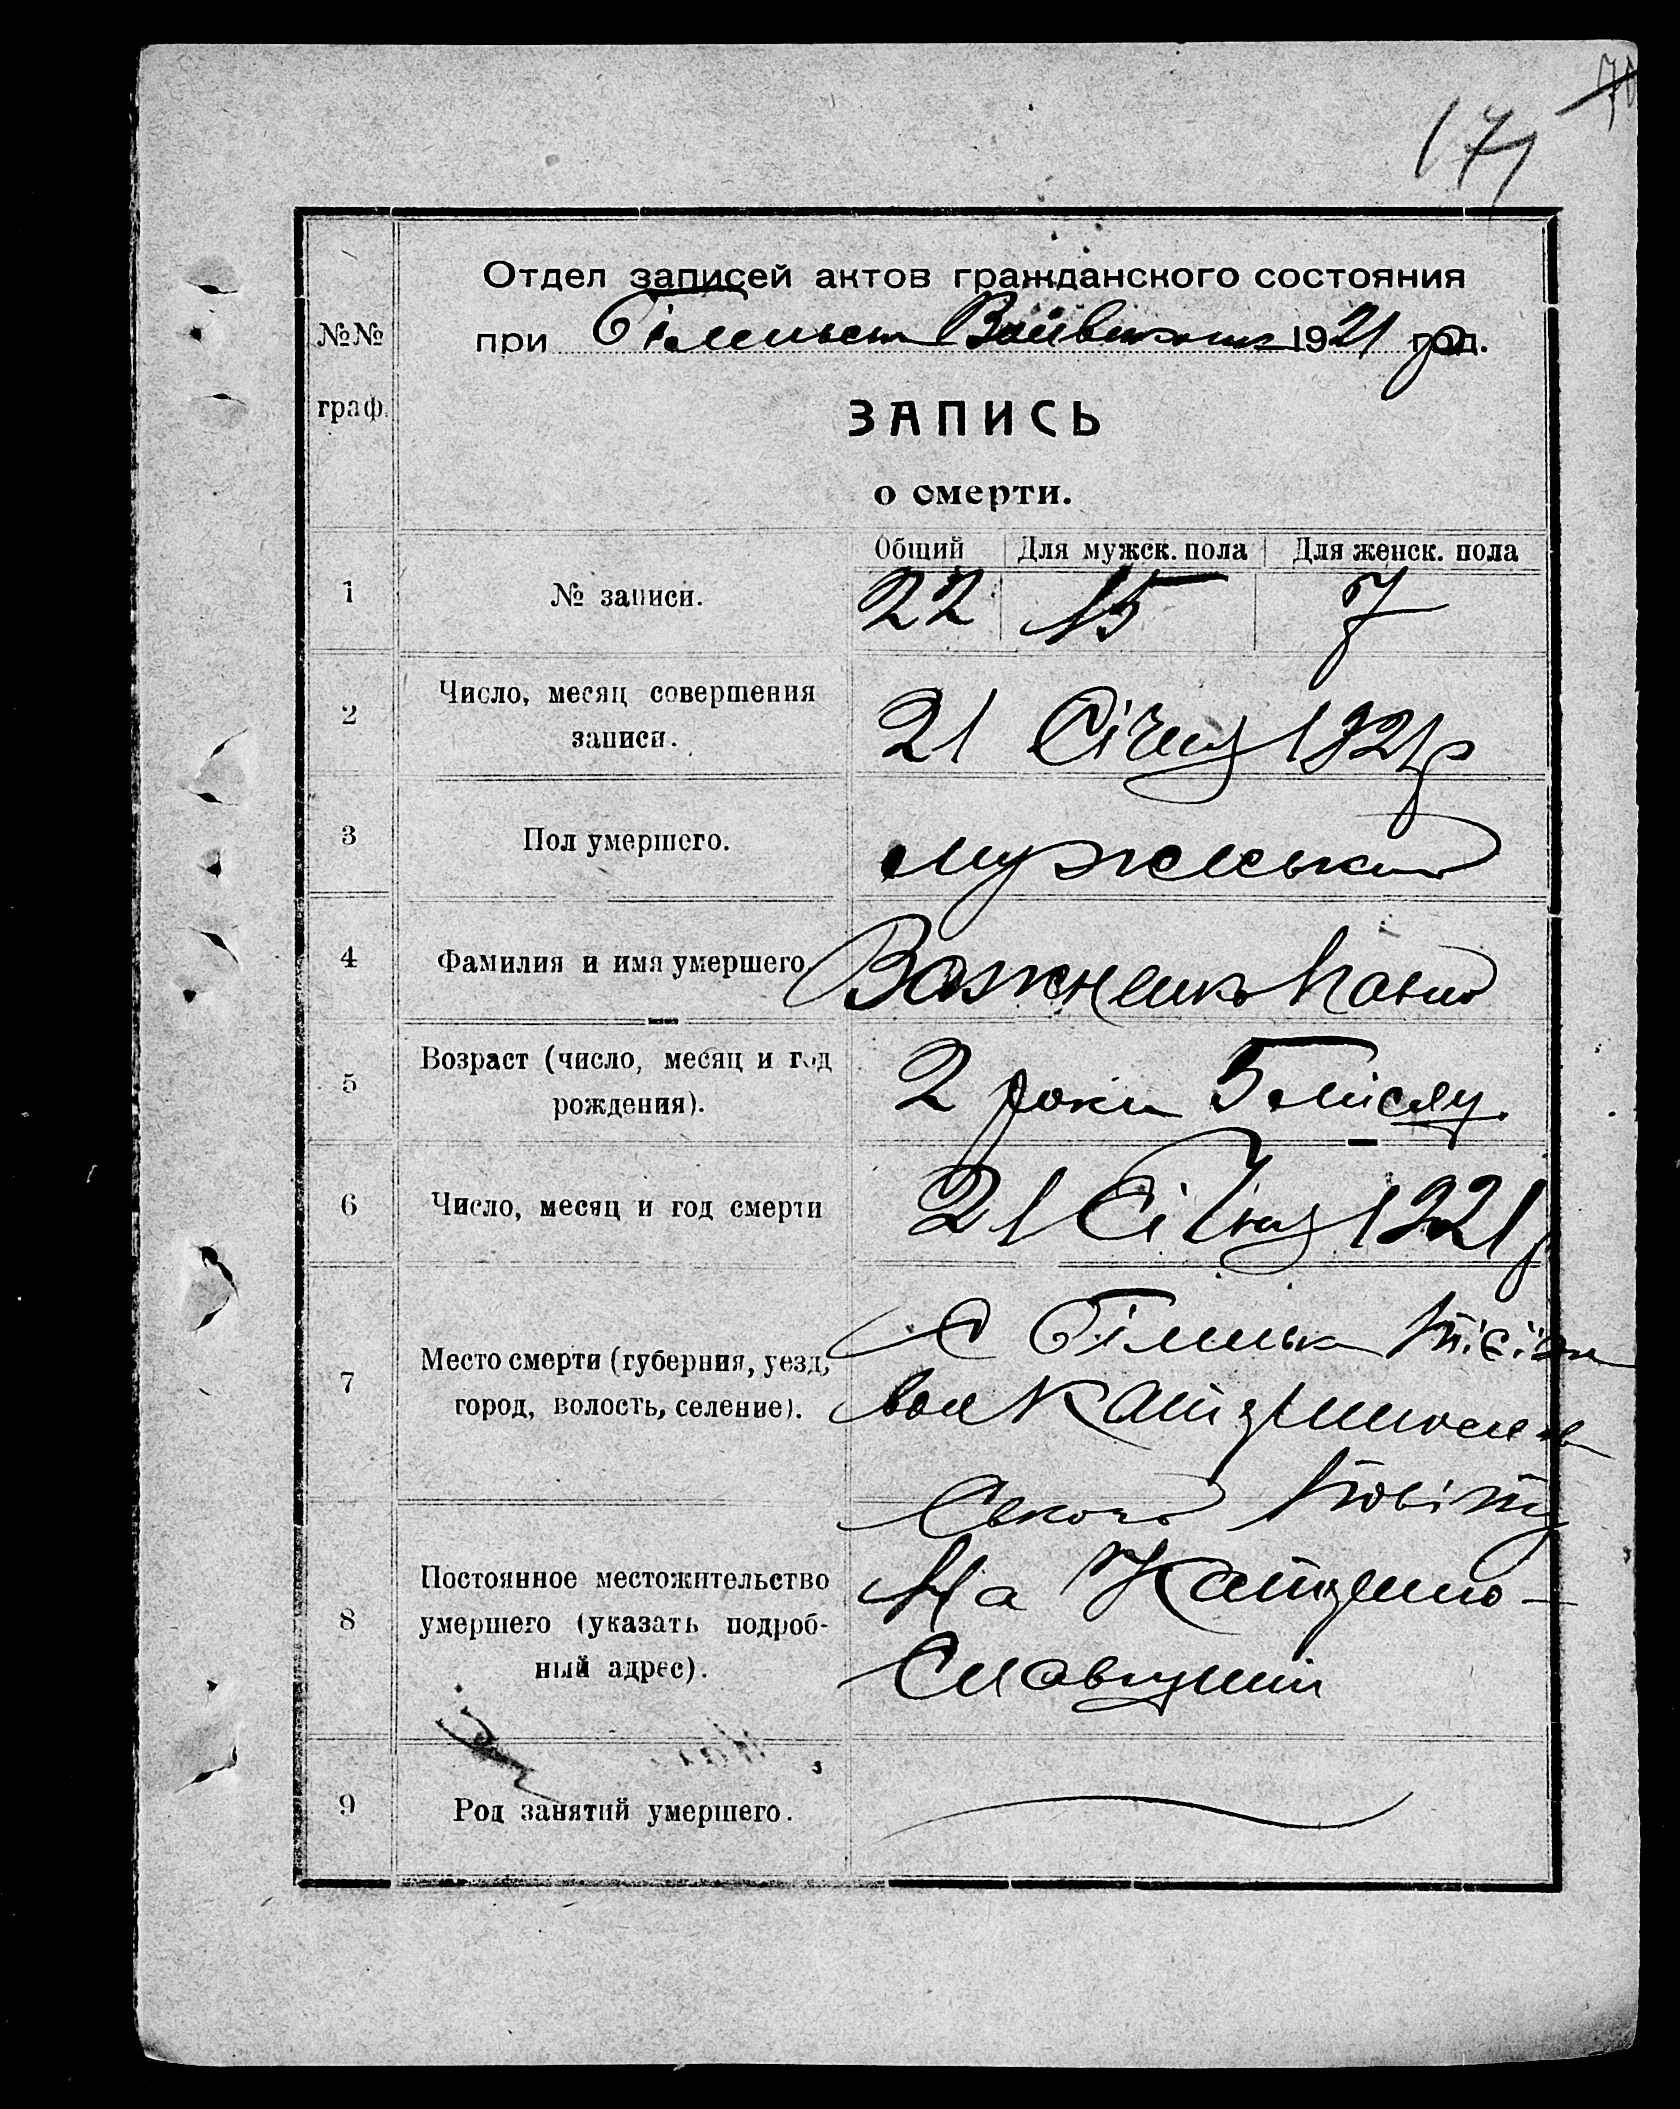 70
171
Отдел записей актов гражданского состояния
№№ при 1921 год.
граф.
ЗАПИСЬ
о смерти.
Общий Для мужск. пола Для женск. пола
1 № записи. 22 15 7
2 Число, месяц совершения
записи. 21 Січня 1921 р
3 Пол умершего. мужеський
4 Фамилия и имя умершего. Важненко
5 Возраст (число, месяц и год
рождения). 2 роки 5 місяц.
6 Число, месяц и год смерти 21 Січня 1921 р
7 Место смерти (губерния, уезд,
город, волость, селение). С
вол Катеринослав
ського повіту
8 Постоянное местожительство
умершего (указать подроб-
ный адрес). На Катерино-
Славщині
9 Род занятий умершего.